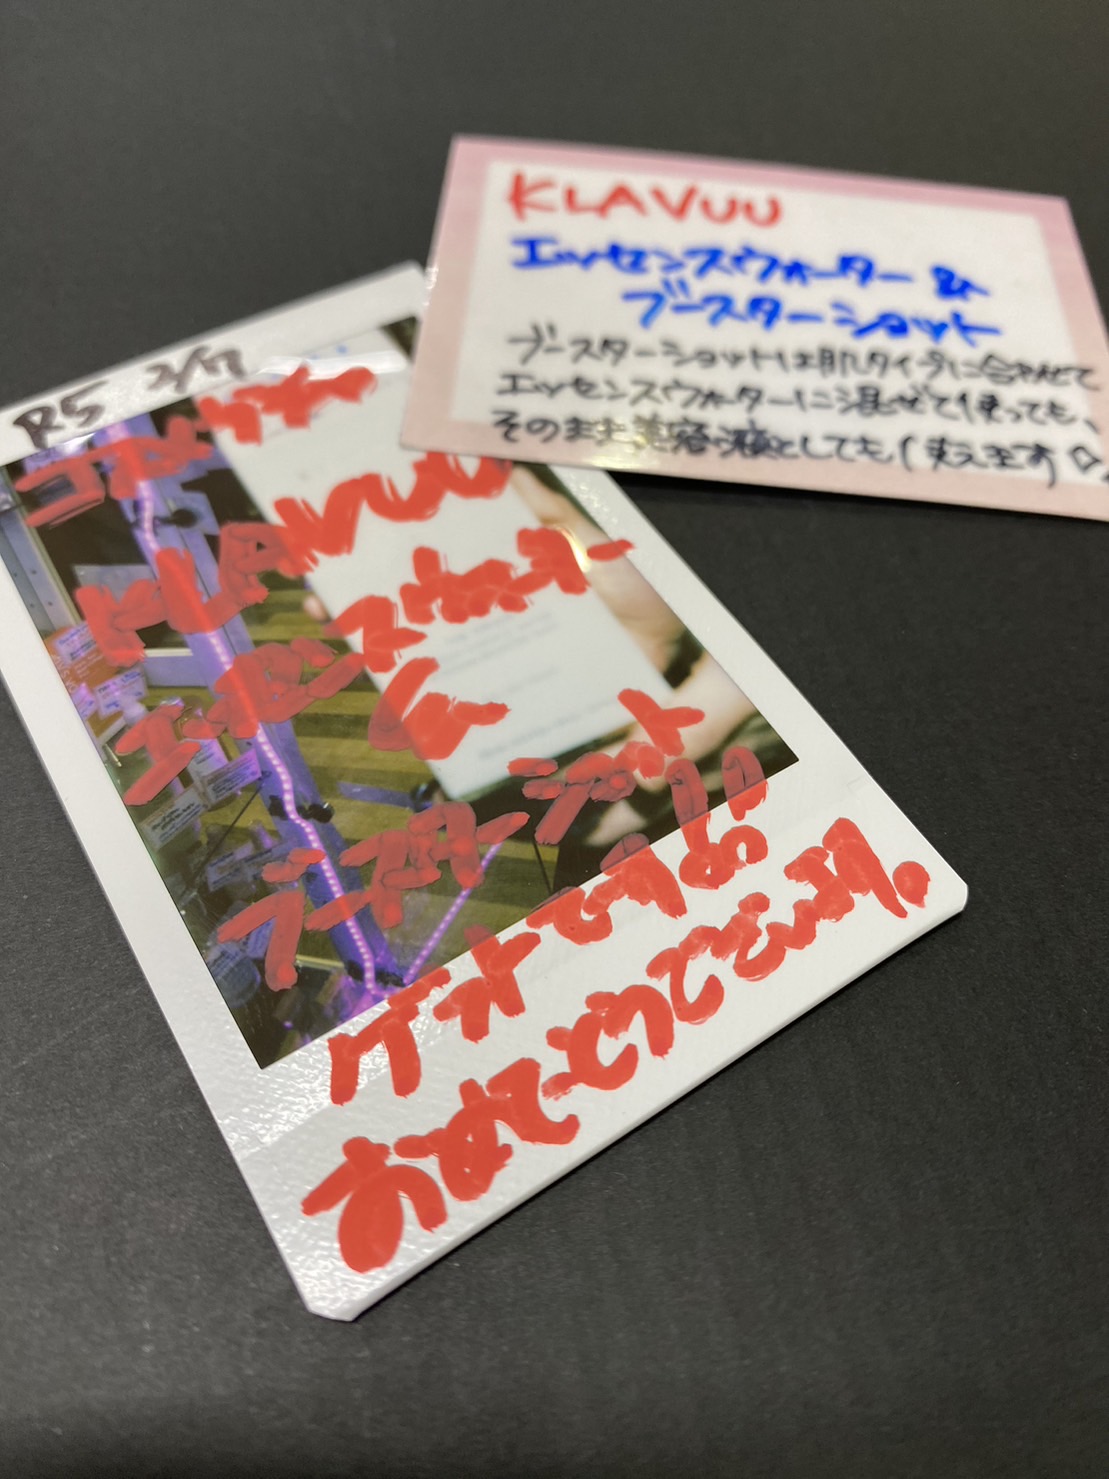 R5 2/17
KLAVUU
エッセンスウォーター
&
ブースターショット
ゲオですよ
おめでとうございます。
KLAVUU
エッセンスウォーター &
ブースターショット
ブースターショットは肌タイプに合わせて
エッセンスウォーターに混ぜて使っても、
そのまま美容液としても使えます♡